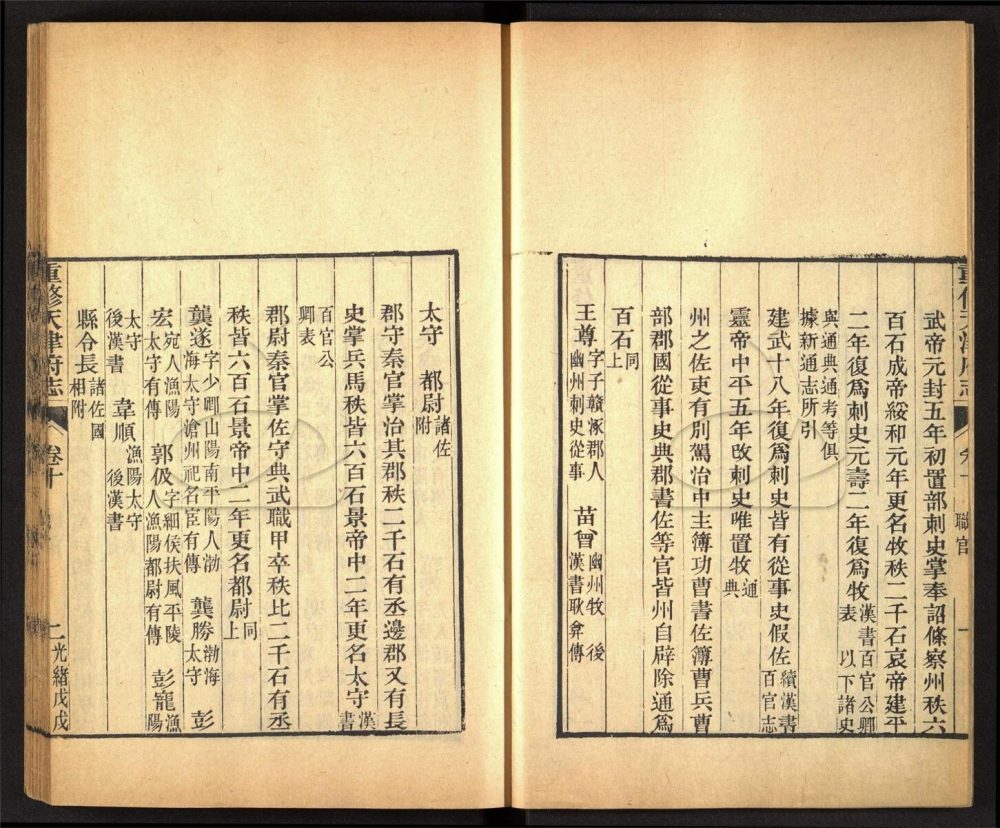 武帝元封五年初置部刺史掌奉詔條察州秩六
百石成帝綏和元年更名牧秩二千石哀帝建平
二年復爲刺史元壽二年復爲牧漢書百官公卿表 以下諸史
與通典通考等俱據新通志所引
建武十八年復爲刺史皆有從事史假佐續漢書百官志
靈帝中平五年改刺史唯置牧通典
州之佐吏有別駕治中主簿功曹書佐簿曹兵曹
部郡國從事史典郡書佐等官皆州自辟除通爲
百石同上
王尊字子贛涿郡人幽州刺史從事 苗曾幽州牧 後漢書耿弇傳
職官
一
太守 都尉諸佐附
郡守秦官掌治其郡秩二千石有丞邊郡又有長
史掌兵馬秩皆六百石景帝中二年更名太守漢書
百官公卿表
郡尉秦官掌佐守典武職甲卒秩比二千石有丞
秩皆六百石景帝中二年更名都尉同上
龔遂字少卿山陽南平陽人渤海太守滄州祀名宦有傳 龔勝渤海太守 彭
宏宛人漁陽太守有傳 郭伋字細侯扶風平陵人漁陽都尉有傳 彭寵漁陽
太守後漢書 韋順漁陽太守 後漢書
縣令長諸佐國相附
重修天津府志
卷十
二
光緒戊戌